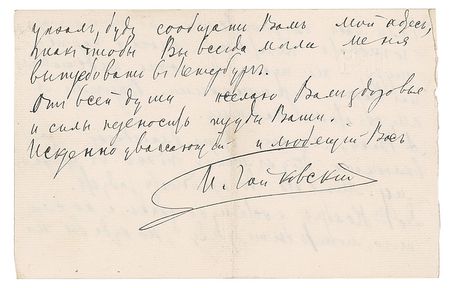 уѣзжать, буду сообщать Вамъ мой адресъ,
такъ чтобы Вы всегда могли меня
вытребовать въ Петербургъ.
Отъ всей души желаю Вамъ здоровья
и силы переносить труды Ваши.
Искренно уважающій и любящій Васъ
П. Чайковскій